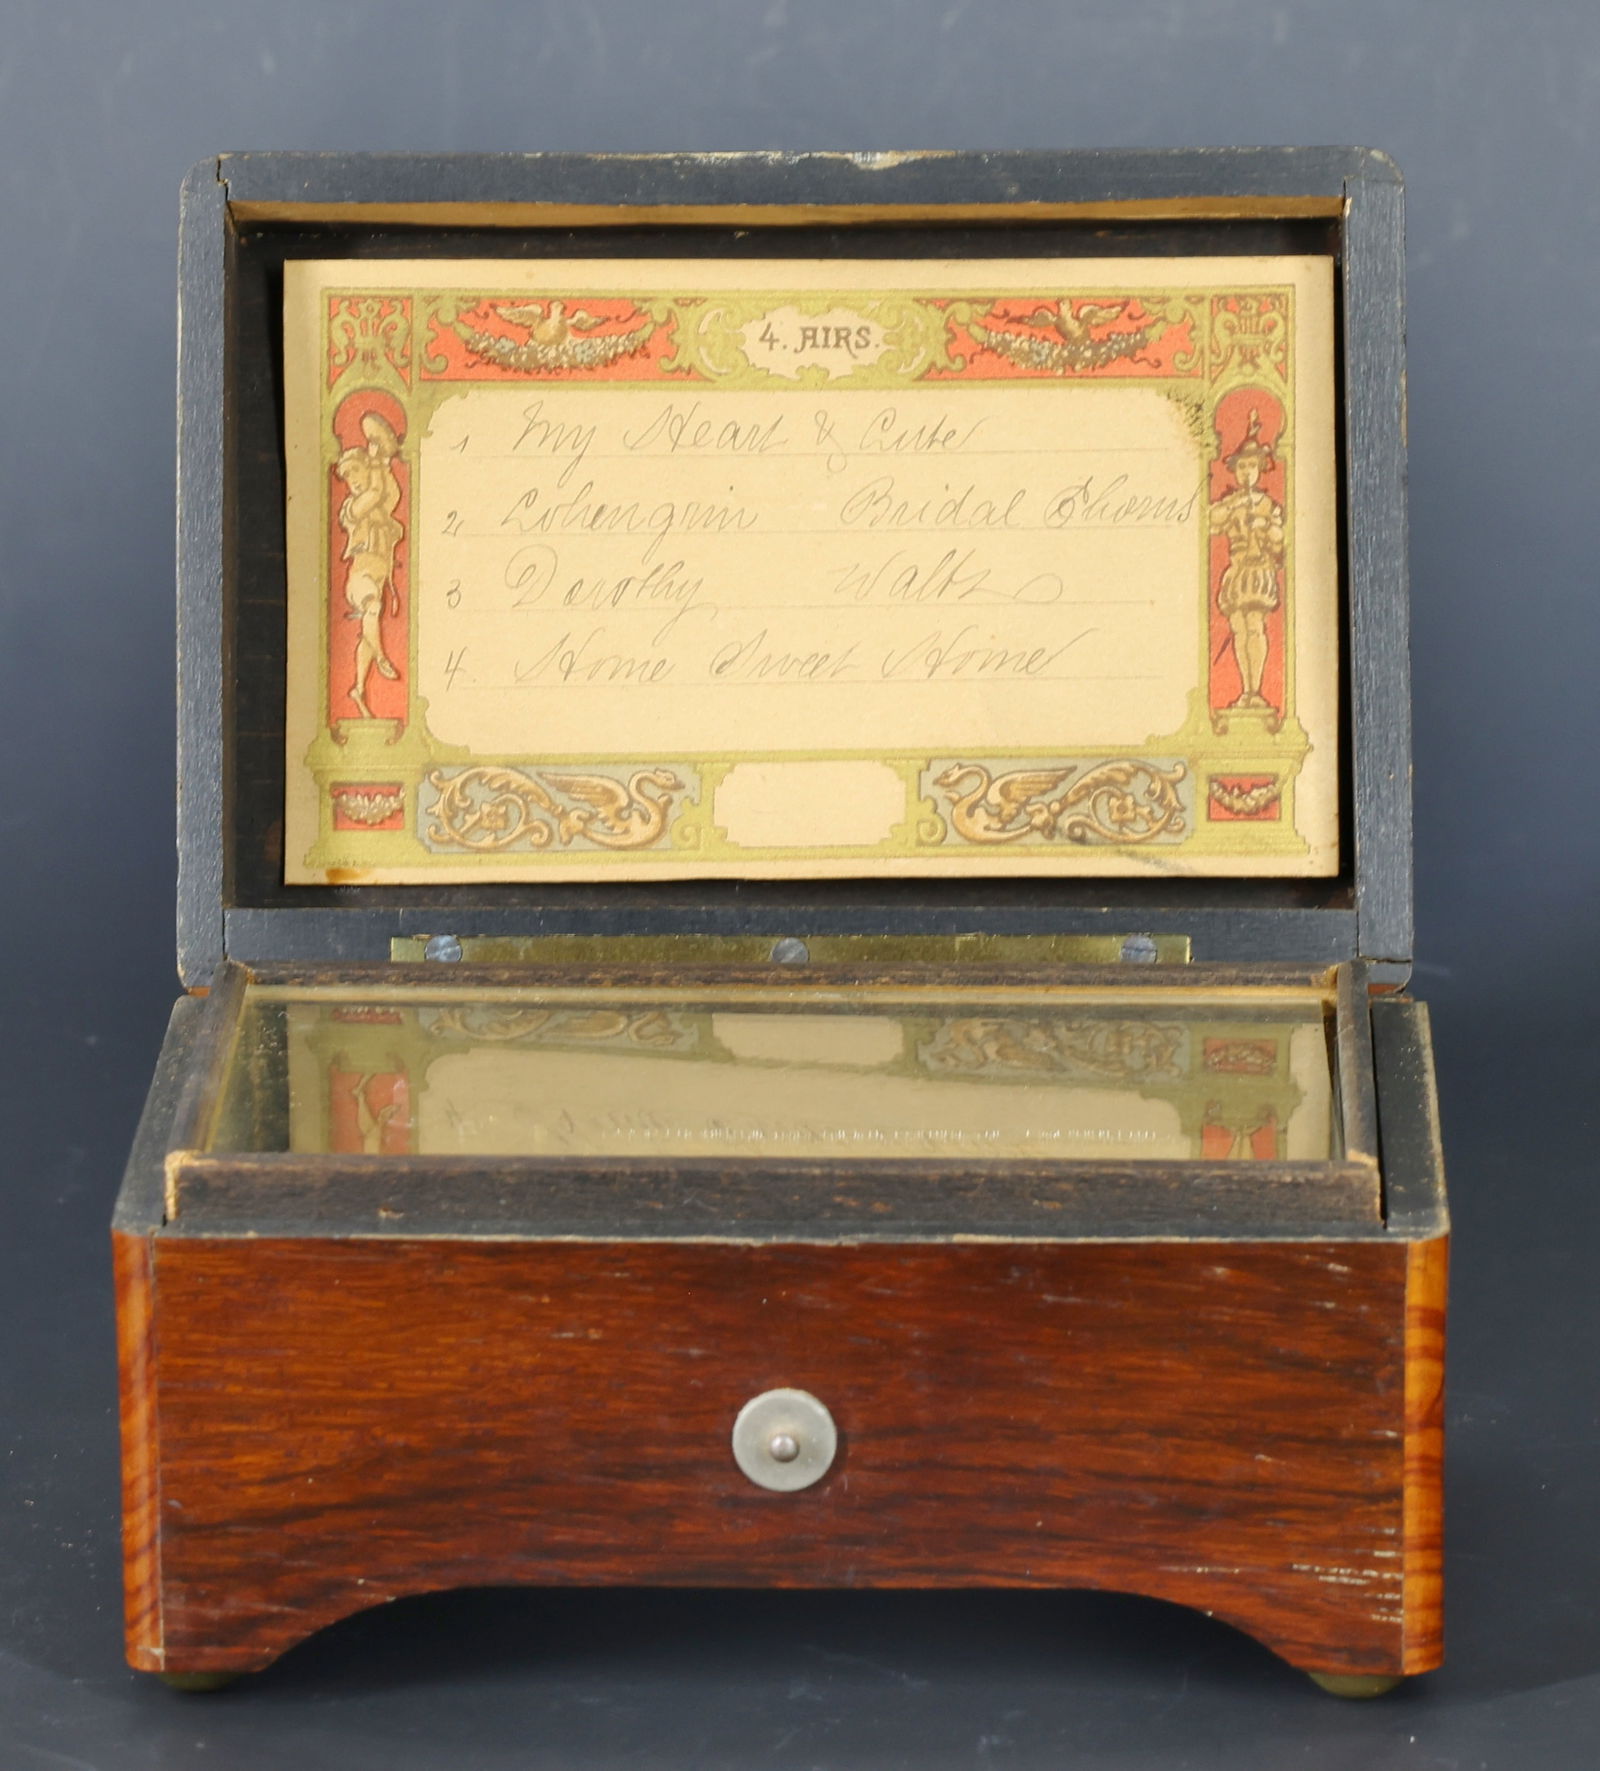 4. AIRS.
1 My Heart & Lute
2 Lohengrin Bridal Chorus
3 Dorothy Waltz
4. Home Sweet Home